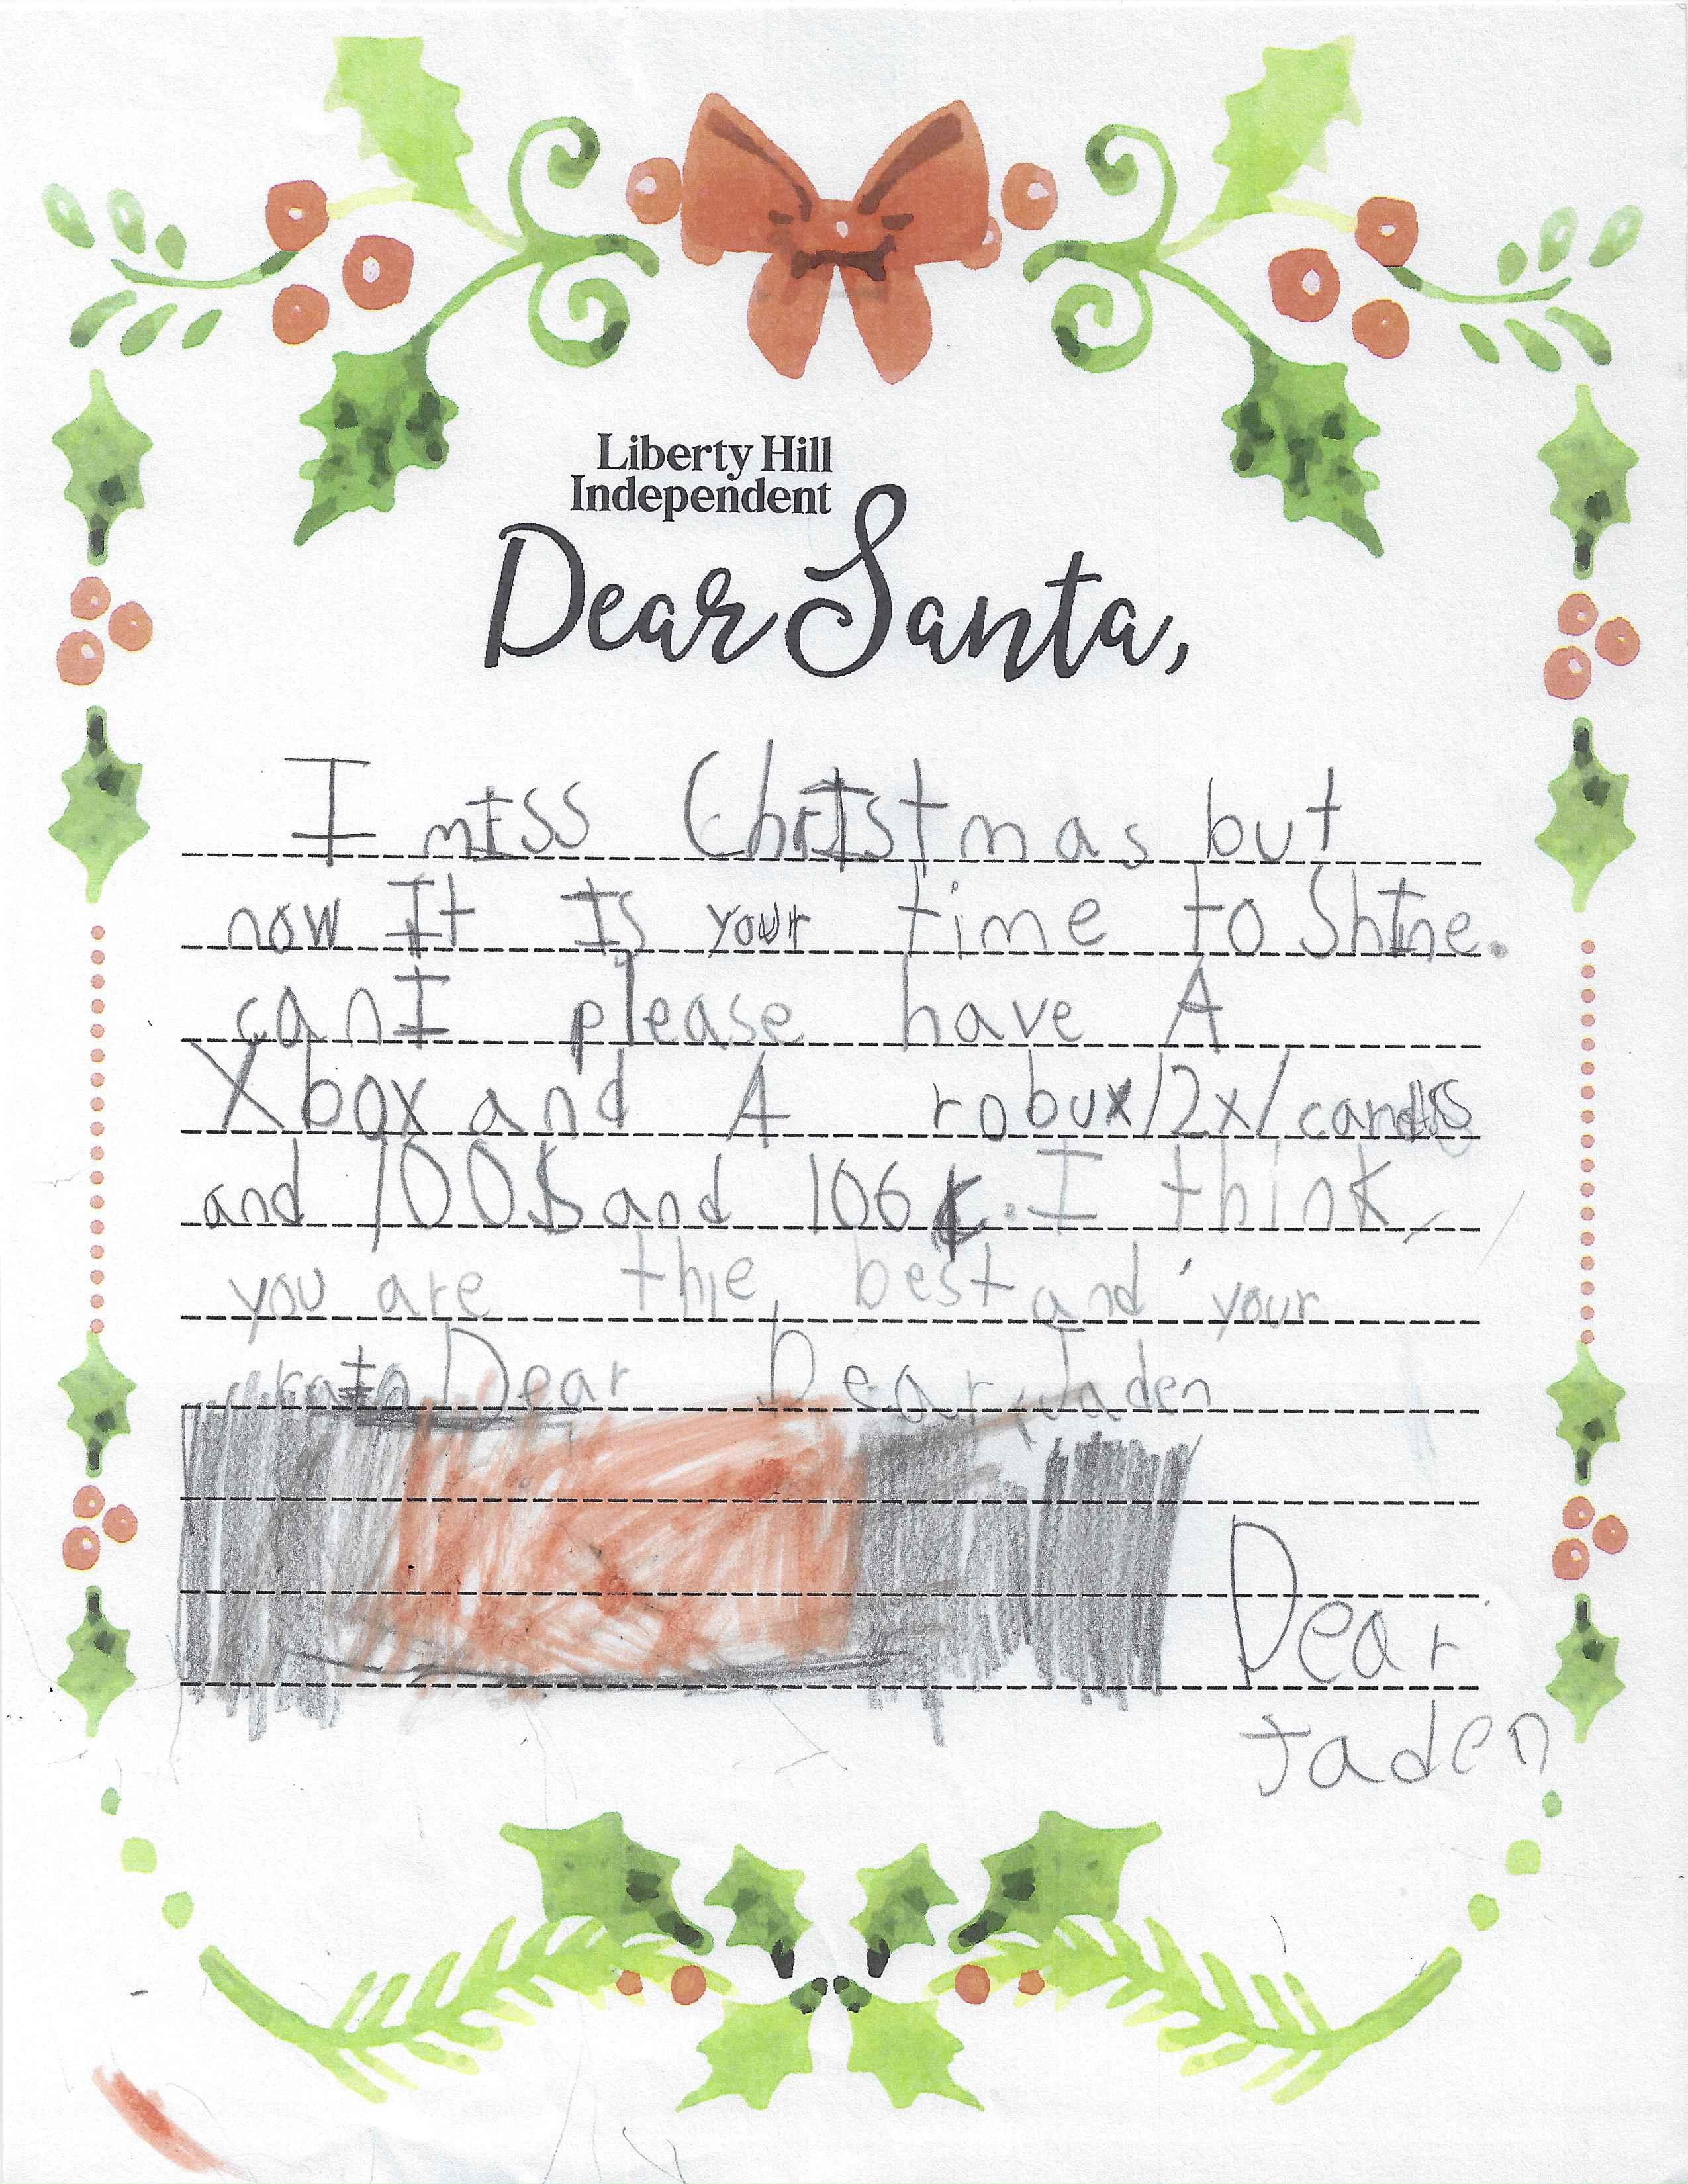 Liberty Hill
Independent
Dear Santa,
I miss Christmas but
now It Is your time to ShIne.
can I please have A
Xbox and A robux/2x/cards
and 100$ and 106¢. I think
you are the best and your
Dear Dear Jaden
Dear
Jaden